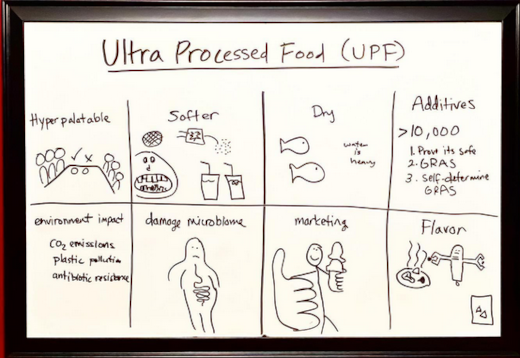 Ultra Processed Food (UPF)
Hyper palatable
Softer
Dry
water
is
heavy
Additives
>10,000
1. Prove its safe
2. GRAS
3. self-determine
GRAS
environment impact
CO2 emissions
plastic pollution
antibiotic resistance
damage microbiome
marketing
Flavor